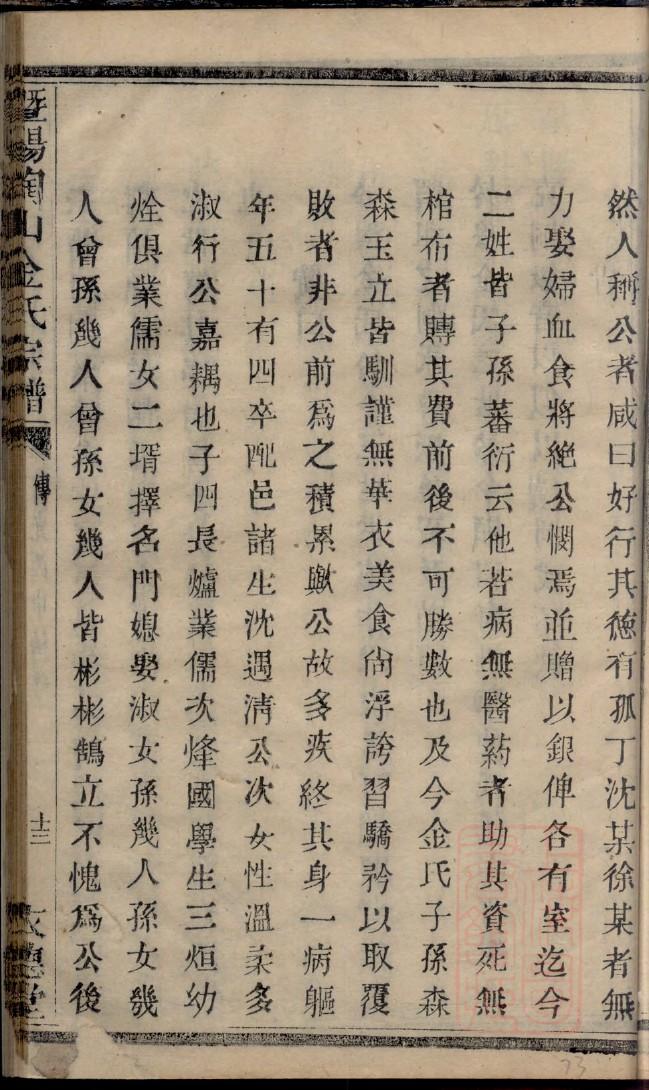 然人稱公者咸曰好行其德有孤丁沈某徐某者無
力娶婦血食將絶公憫焉並贈以銀俾各有室迄今
二姓皆子孫蕃衍云他若病無醫葯者助其資死無
棺布者賻其費前後不可勝數也及今金氏子孫森
森玉立皆馴謹無華衣美食尙浮誇習驕矜以取覆
敗者非公前爲之積累歟公故多疾終其身一病軀
年五十有四卒配邑諸生沈遇淸公次女性溫柔多
淑行公嘉耦也子四長爐業儒次烽國學生三烜幼
烇俱業儒女二壻擇名門媳娶淑女孫幾人孫女幾
人曾孫幾人曾孫女幾人皆彬彬鵠立不愧爲公後
暨陽陶山金氏宗譜
傳
十三